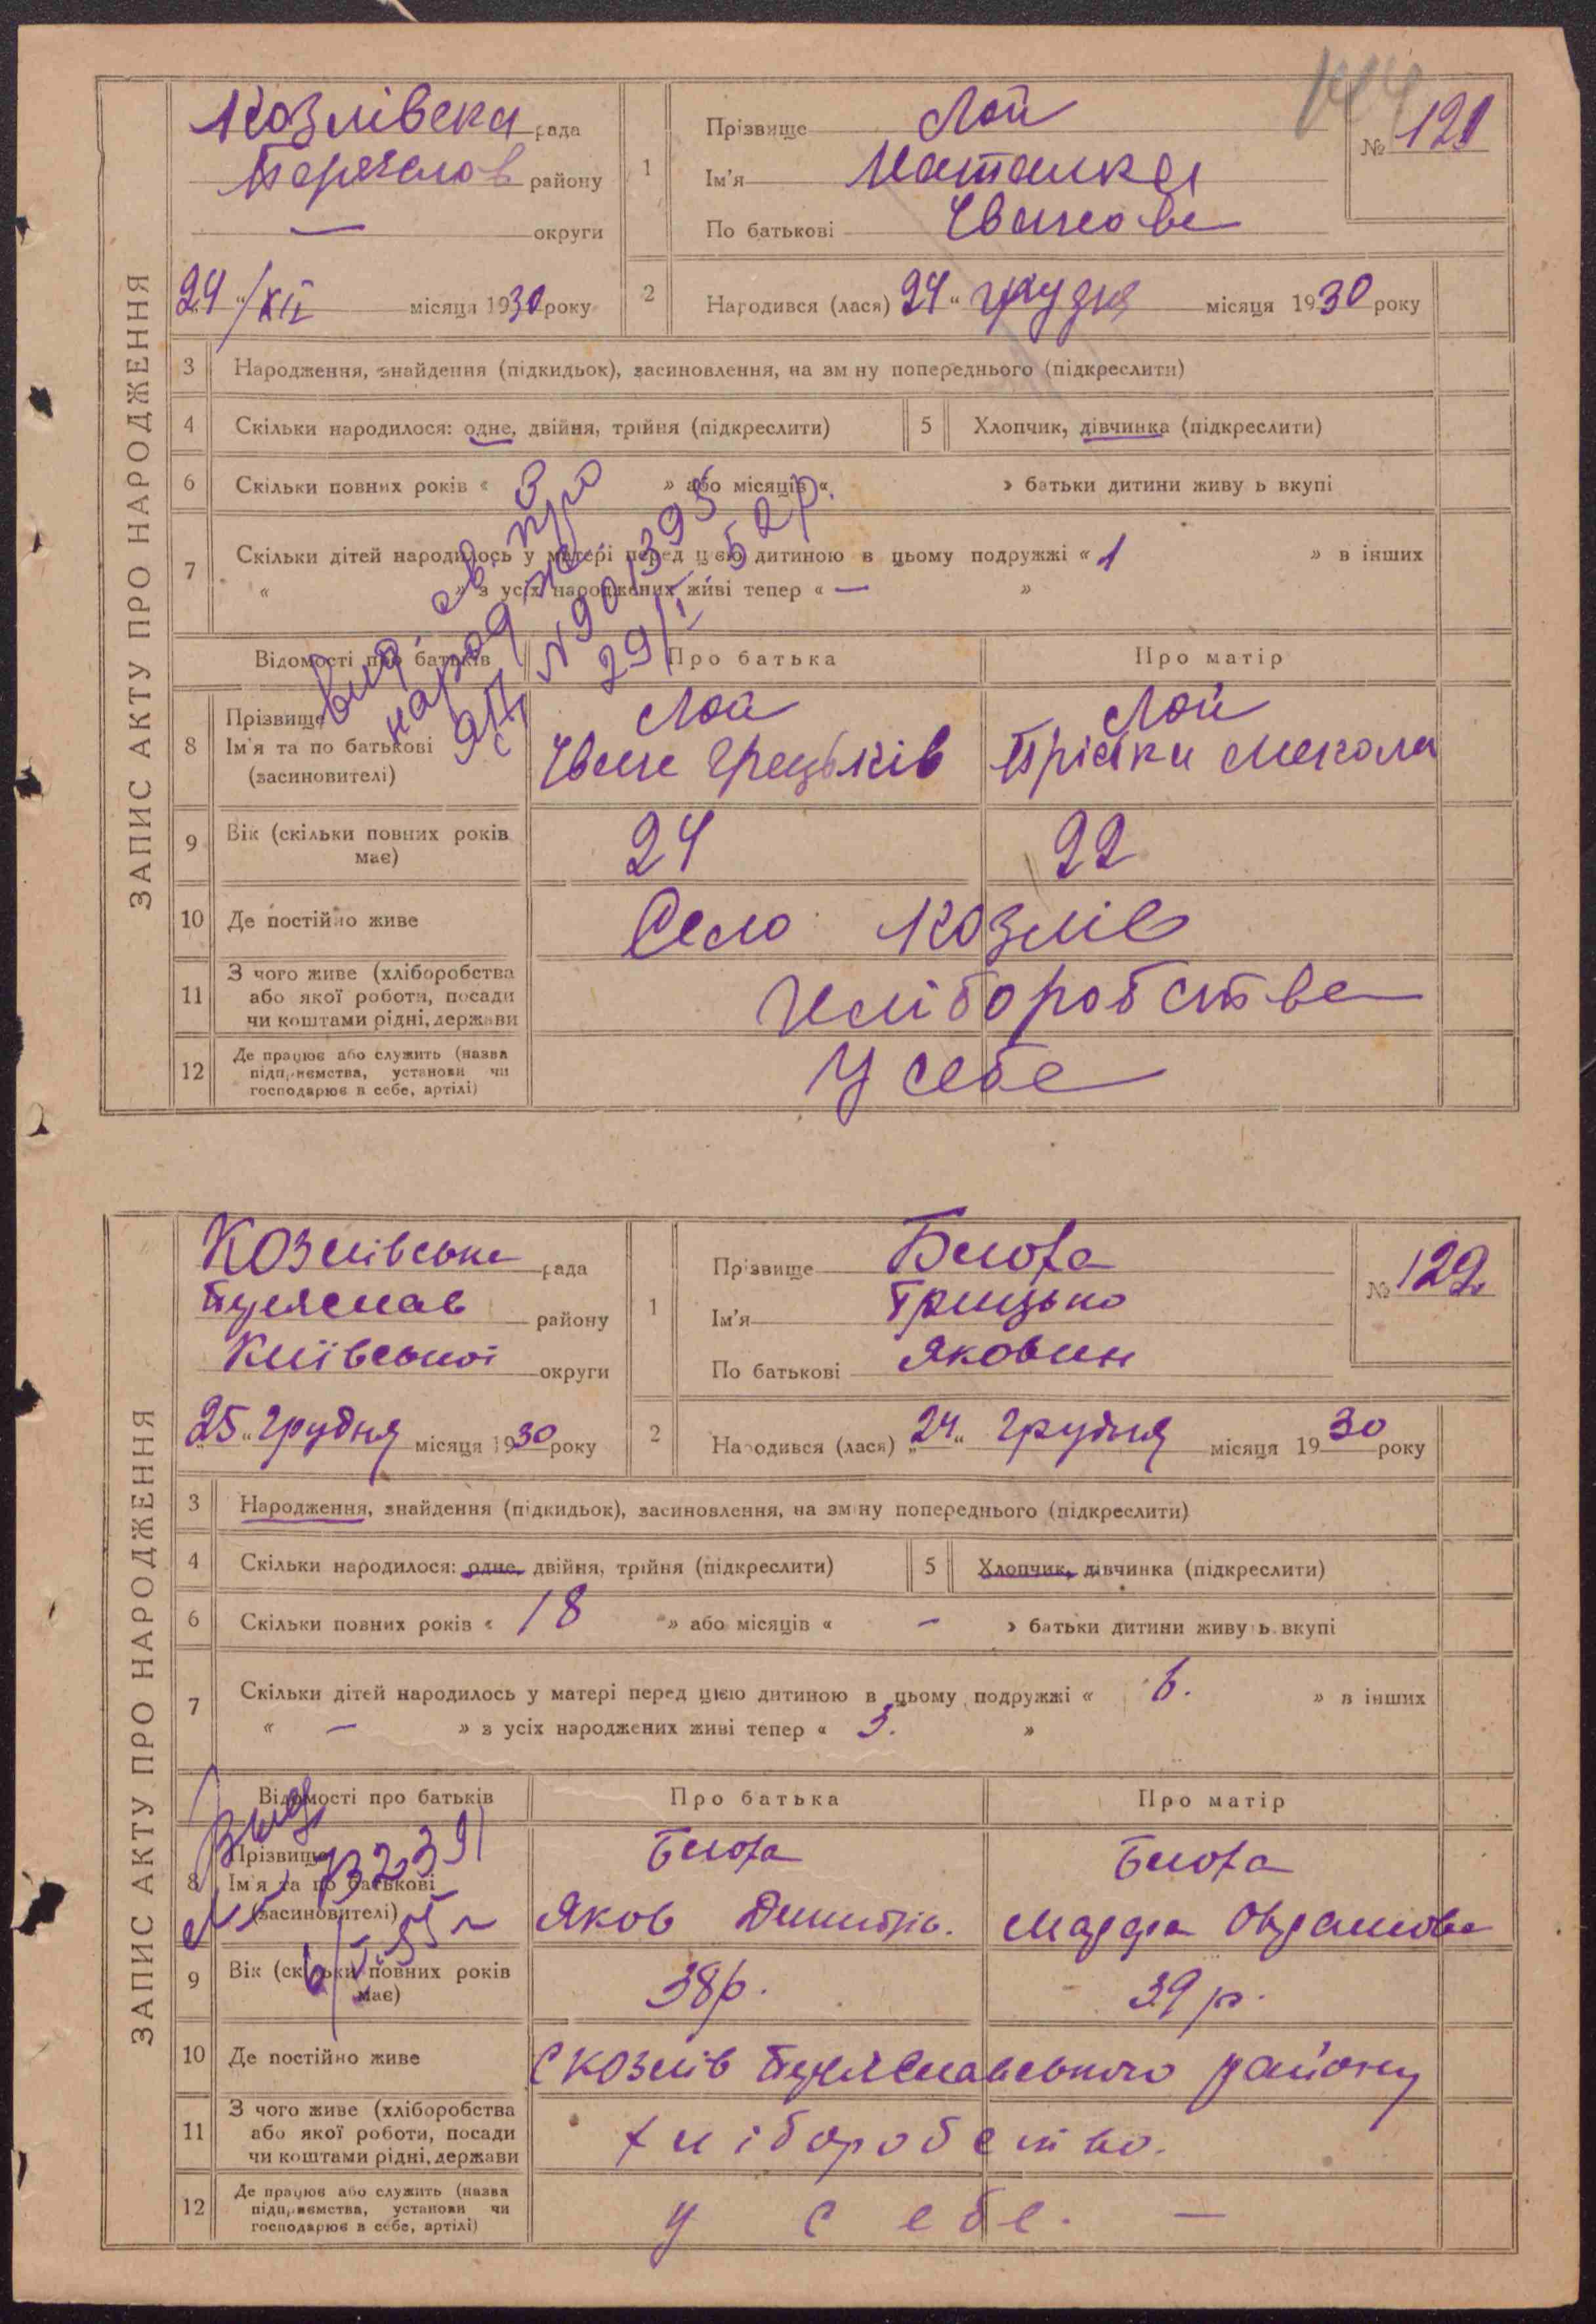 ЗАПИС АКТУ ПРО НАРОДЖЕННЯ
Козлівска рада
району
— округи
24/XII місяця 1930 року
1
Прізвище Лой
Ім'я Наталка
По батькові Іванова
№ 121
2
Народився (лася) 24 " грудня місяця 1930 року
3 Народження, знайдення (підкидьок), засиновлення, на зміну попереднього (підкреслити)
4 Скільки народилося: одне, двійня, трійня (підкреслити)
5 Хлопчик, дівчинка (підкреслити)
6 Скільки повних років « 3 » або місяців « » батьки дитини живуть вкупі
7 Скільки дітей народилось у матері перед цією дитиною в цьому подружжі « 1 » в інших
« » з усіх народжених живі тепер « — »
вид. св. про
народж.
№ 901395
29/I 52 р.
Відомості про батьків
Про батька
Про матір
8 Прізвище
Ім'я та по батькові
(засиновителі)
Лой
Іван Грецьків
Лой
Прісіка Мекола
9 Вік (скільки повних років має)
24
22
10 Де постійно живе
Село Козлів
11 З чого живе (хліборобства
або якої роботи, посади
чи коштами рідні, держави
Хліборобства
12 Де працює або служить (назва
підприємства, установи чи
господарює в себе, артілі)
У себе
ЗАПИС АКТУ ПРО НАРОДЖЕННЯ
Козлівська рада
району
Київської округи
„25" грудня місяця 1930 року
1
Прізвище Блоха
Ім'я Грицько
По батькові Яковин
№ 122
2
Народився (лася) „24" грудня місяця 1930 року
3 Народження, знайдення (підкидьок), засиновлення, на зміну попереднього (підкреслити)
4 Скільки народилося: одне, двійня, трійня (підкреслити)
5 Хлопчик, дівчинка (підкреслити)
6 Скільки повних років « 18 » або місяців « — » батьки дитини живуть вкупі
7 Скільки дітей народилось у матері перед цією дитиною в цьому подружжі « 6. » в інших
« — » з усіх народжених живі тепер « 3. »
Відомості про батьків
Про батька
Про матір
8 Прізвище
Ім'я та по батькові
(засиновителі)
Блоха
Яков Дмитрів.
Блоха
Марфа
9 Вік (скільки повних років має)
38 р.
39 р.
10 Де постійно живе
С Козлів Переяславського району
11 З чого живе (хліборобства
або якої роботи, посади
чи коштами рідні, держави
хліборобство.
12 Де працює або служить (назва
підприємства, установи чи
господарює в себе, артілі)
у себе. —